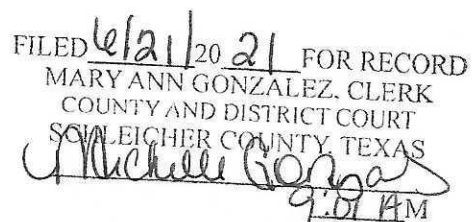 FILED 6/21/20 21 FOR RECORD
MARY ANN GONZALEZ, CLERK
COUNTY AND DISTRICT COURT
SCHLEICHER COUNTY, TEXAS
Michelle
9:01 AM